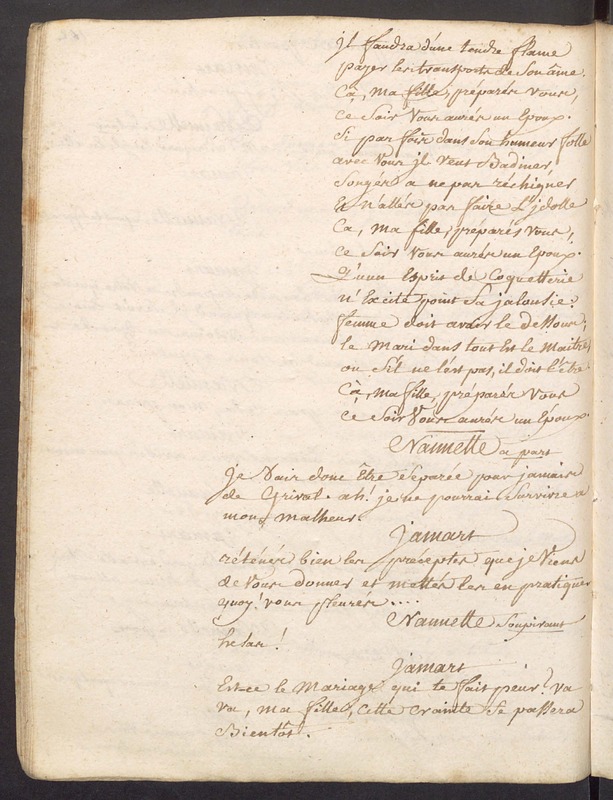 jl faudra d'une tendre flame
payer les transports de Son âme.
Cà, ma fille, preparés vous,
ce Soir vous aurés un Epoux.
Si par fois dans Son humeur folle
avec vous jl veut Badiner,
Songés a ne pas réchigner
Et n'allés pas faire L'jdolle
Ca, ma fille, preparés vous,
ce Soir vous aurés un Epoux.
Qu'un Esprit de Coquetterie
n'Excite point Sa jalousie.
femme doit avoir le dessous;
le Mari dans tout Est le Maitre,
ou S'il ne l'est pas, il doit l'être
Cà, Ma fille, préparés vous
ce Soir vous aurés un Epoux.
Nannette a part
je vais donc Être séparée pour jamais
de Grivot. ah! je ne pourrai Survivre a
mon malheur.
jamart
réténés bien les préceptes que je viens
de vous donner et mettés les en pratique
quoy! vous pleurés....
Nannette Soupirant
helas!
jamart
Est-ce le Mariage qui te fait peur? va
va, ma fille, cette crainte Se passera
Bientôt.